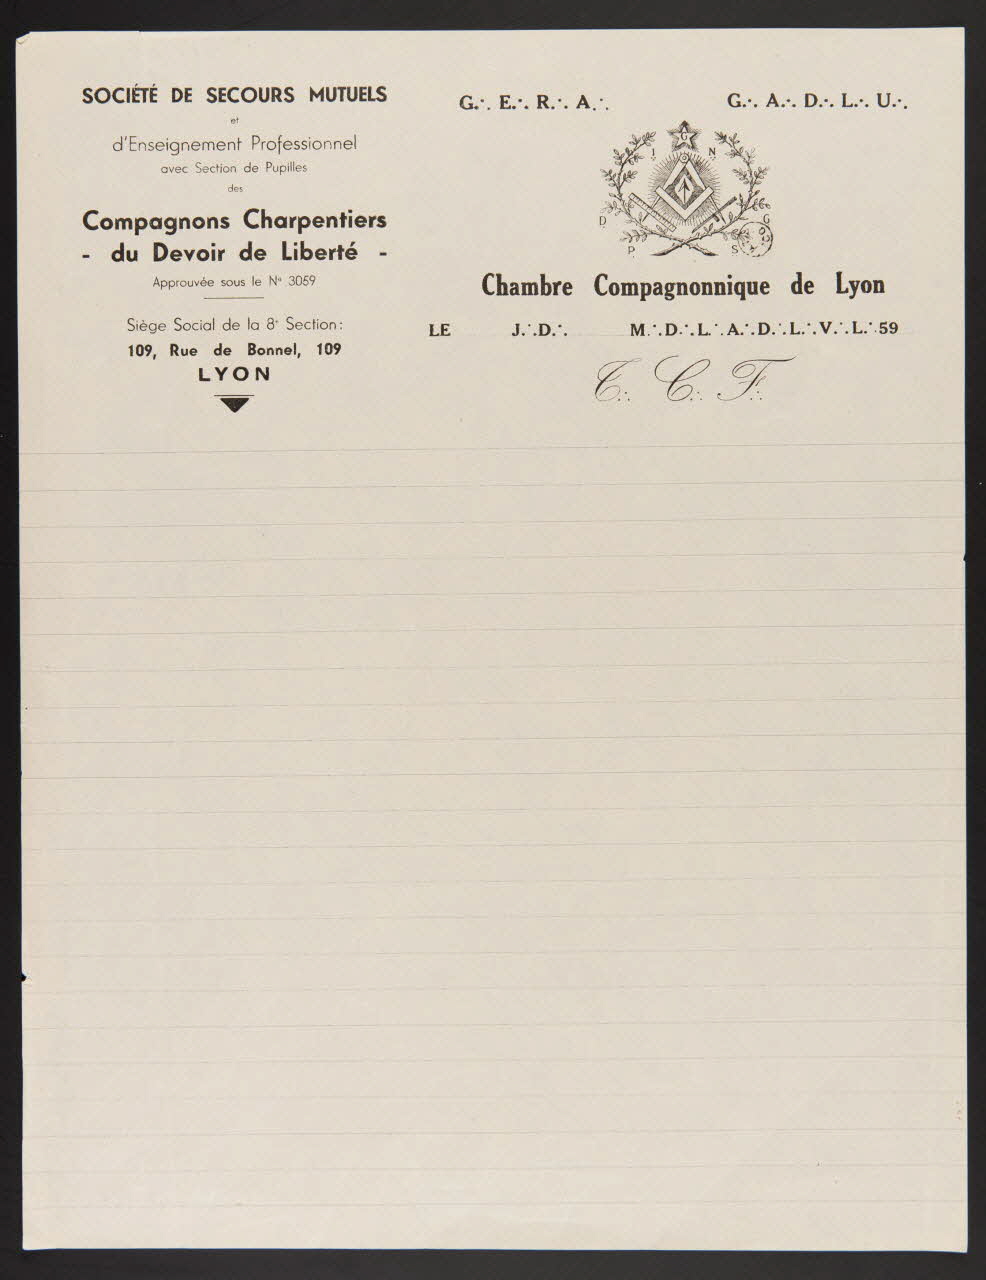 SOCIÉTÉ DE SECOURS MUTUELS
et
d'Enseignement Professionnel
avec Section de Pupilles
des
Compagnons Charpentiers
- du Devoir de Liberté -
Approuvée sous le N° 3059
Siège Social de la 8e Section:
109, Rue de Bonnel, 109
LYON
G∴ E∴ R∴ A∴
G∴ A∴ D∴ L∴ U∴
G
I N
D G
P S
Chambre Compagnonnique de Lyon
LE J∴D∴ M∴D∴L∴A∴D∴L∴V∴L∴59
T∴ C∴ F∴